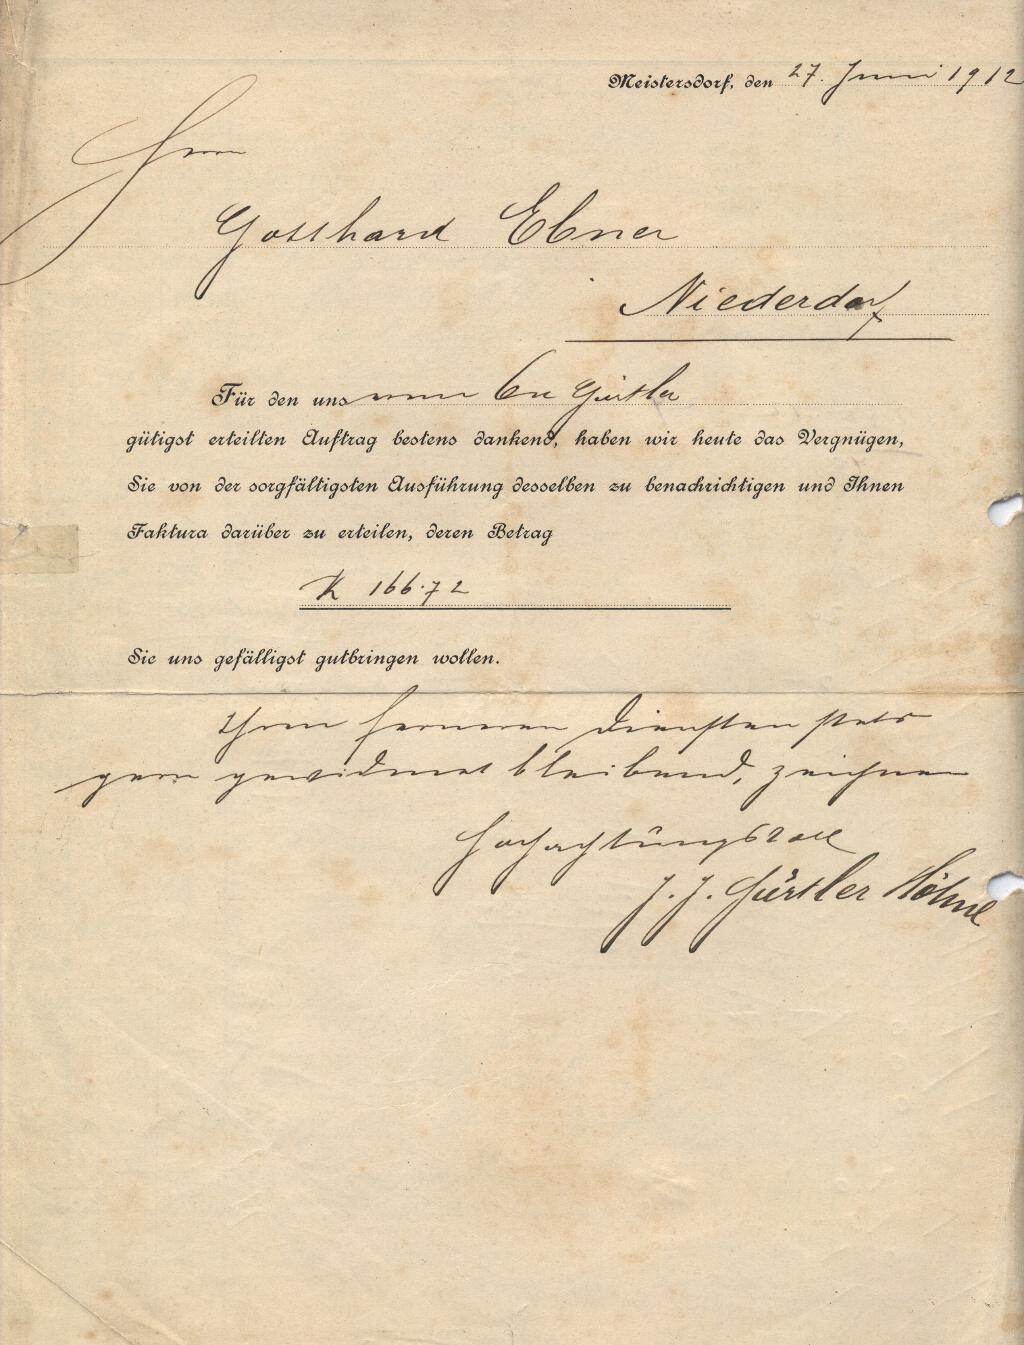 Meistersdorf, den 27. Juni 1912
Herrn
Gotthard Ebner
Niederdorf
Für den uns Gürtler
gütigst erteilten Auftrag bestens dankend, haben wir heute das Vergnügen,
Sie von der sorgfältigsten Ausführung desselben zu benachrichtigen und Ihnen
Faktura darüber zu erteilen, deren Betrag
K 166.72
Sie uns gefälligst gutbringen wollen.
Ihren ferneren Diensten stets
gern gewidmet bleibend, zeichnen
Hochachtungsvoll
J. J. Gürtler Söhne